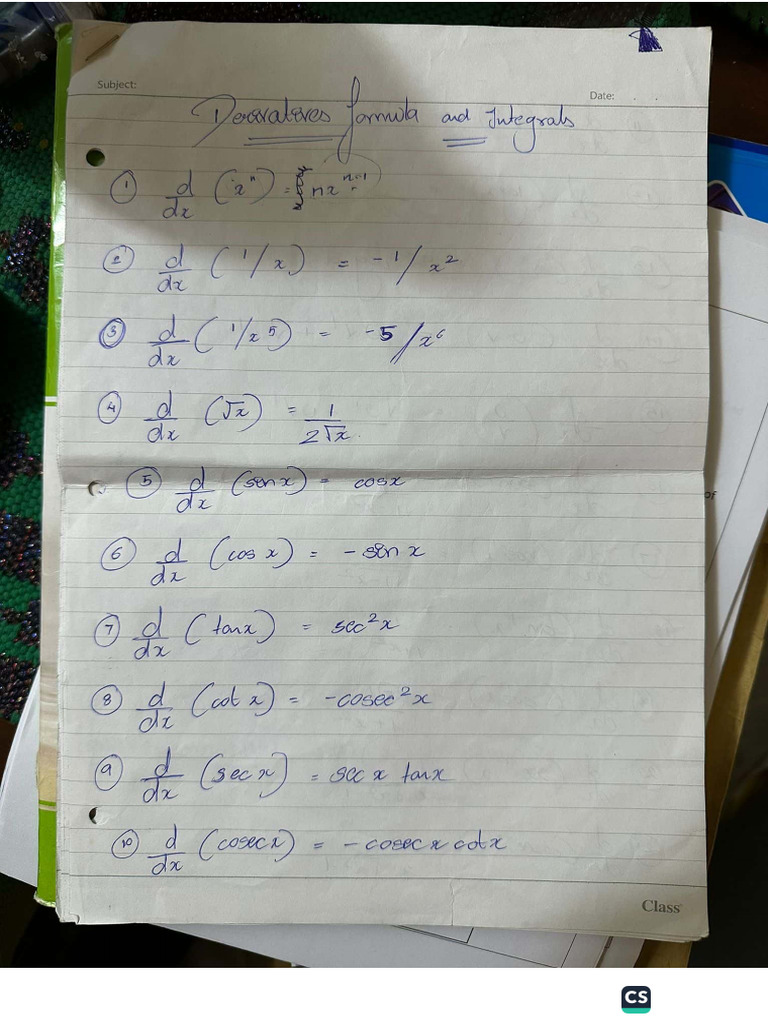 Subject:
Date: . .
Derivatives formula and Integrals
① d/dx (xⁿ) = nxⁿ⁻¹
② d/dx (1/x) = -1/x²
③ d/dx (1/x⁵) = -5/x⁶
④ d/dx (√x) = 1/2√x.
⑤ d/dx (sin x) = cos x
⑥ d/dx (cos x) = - sin x
⑦ d/dx (tan x) = sec²x
⑧ d/dx (cot x) = -cosec²x
⑨ d/dx (sec x) = sec x tan x
⑩ d/dx (cosec x) = - cosec x cot x
Class
OF
CS